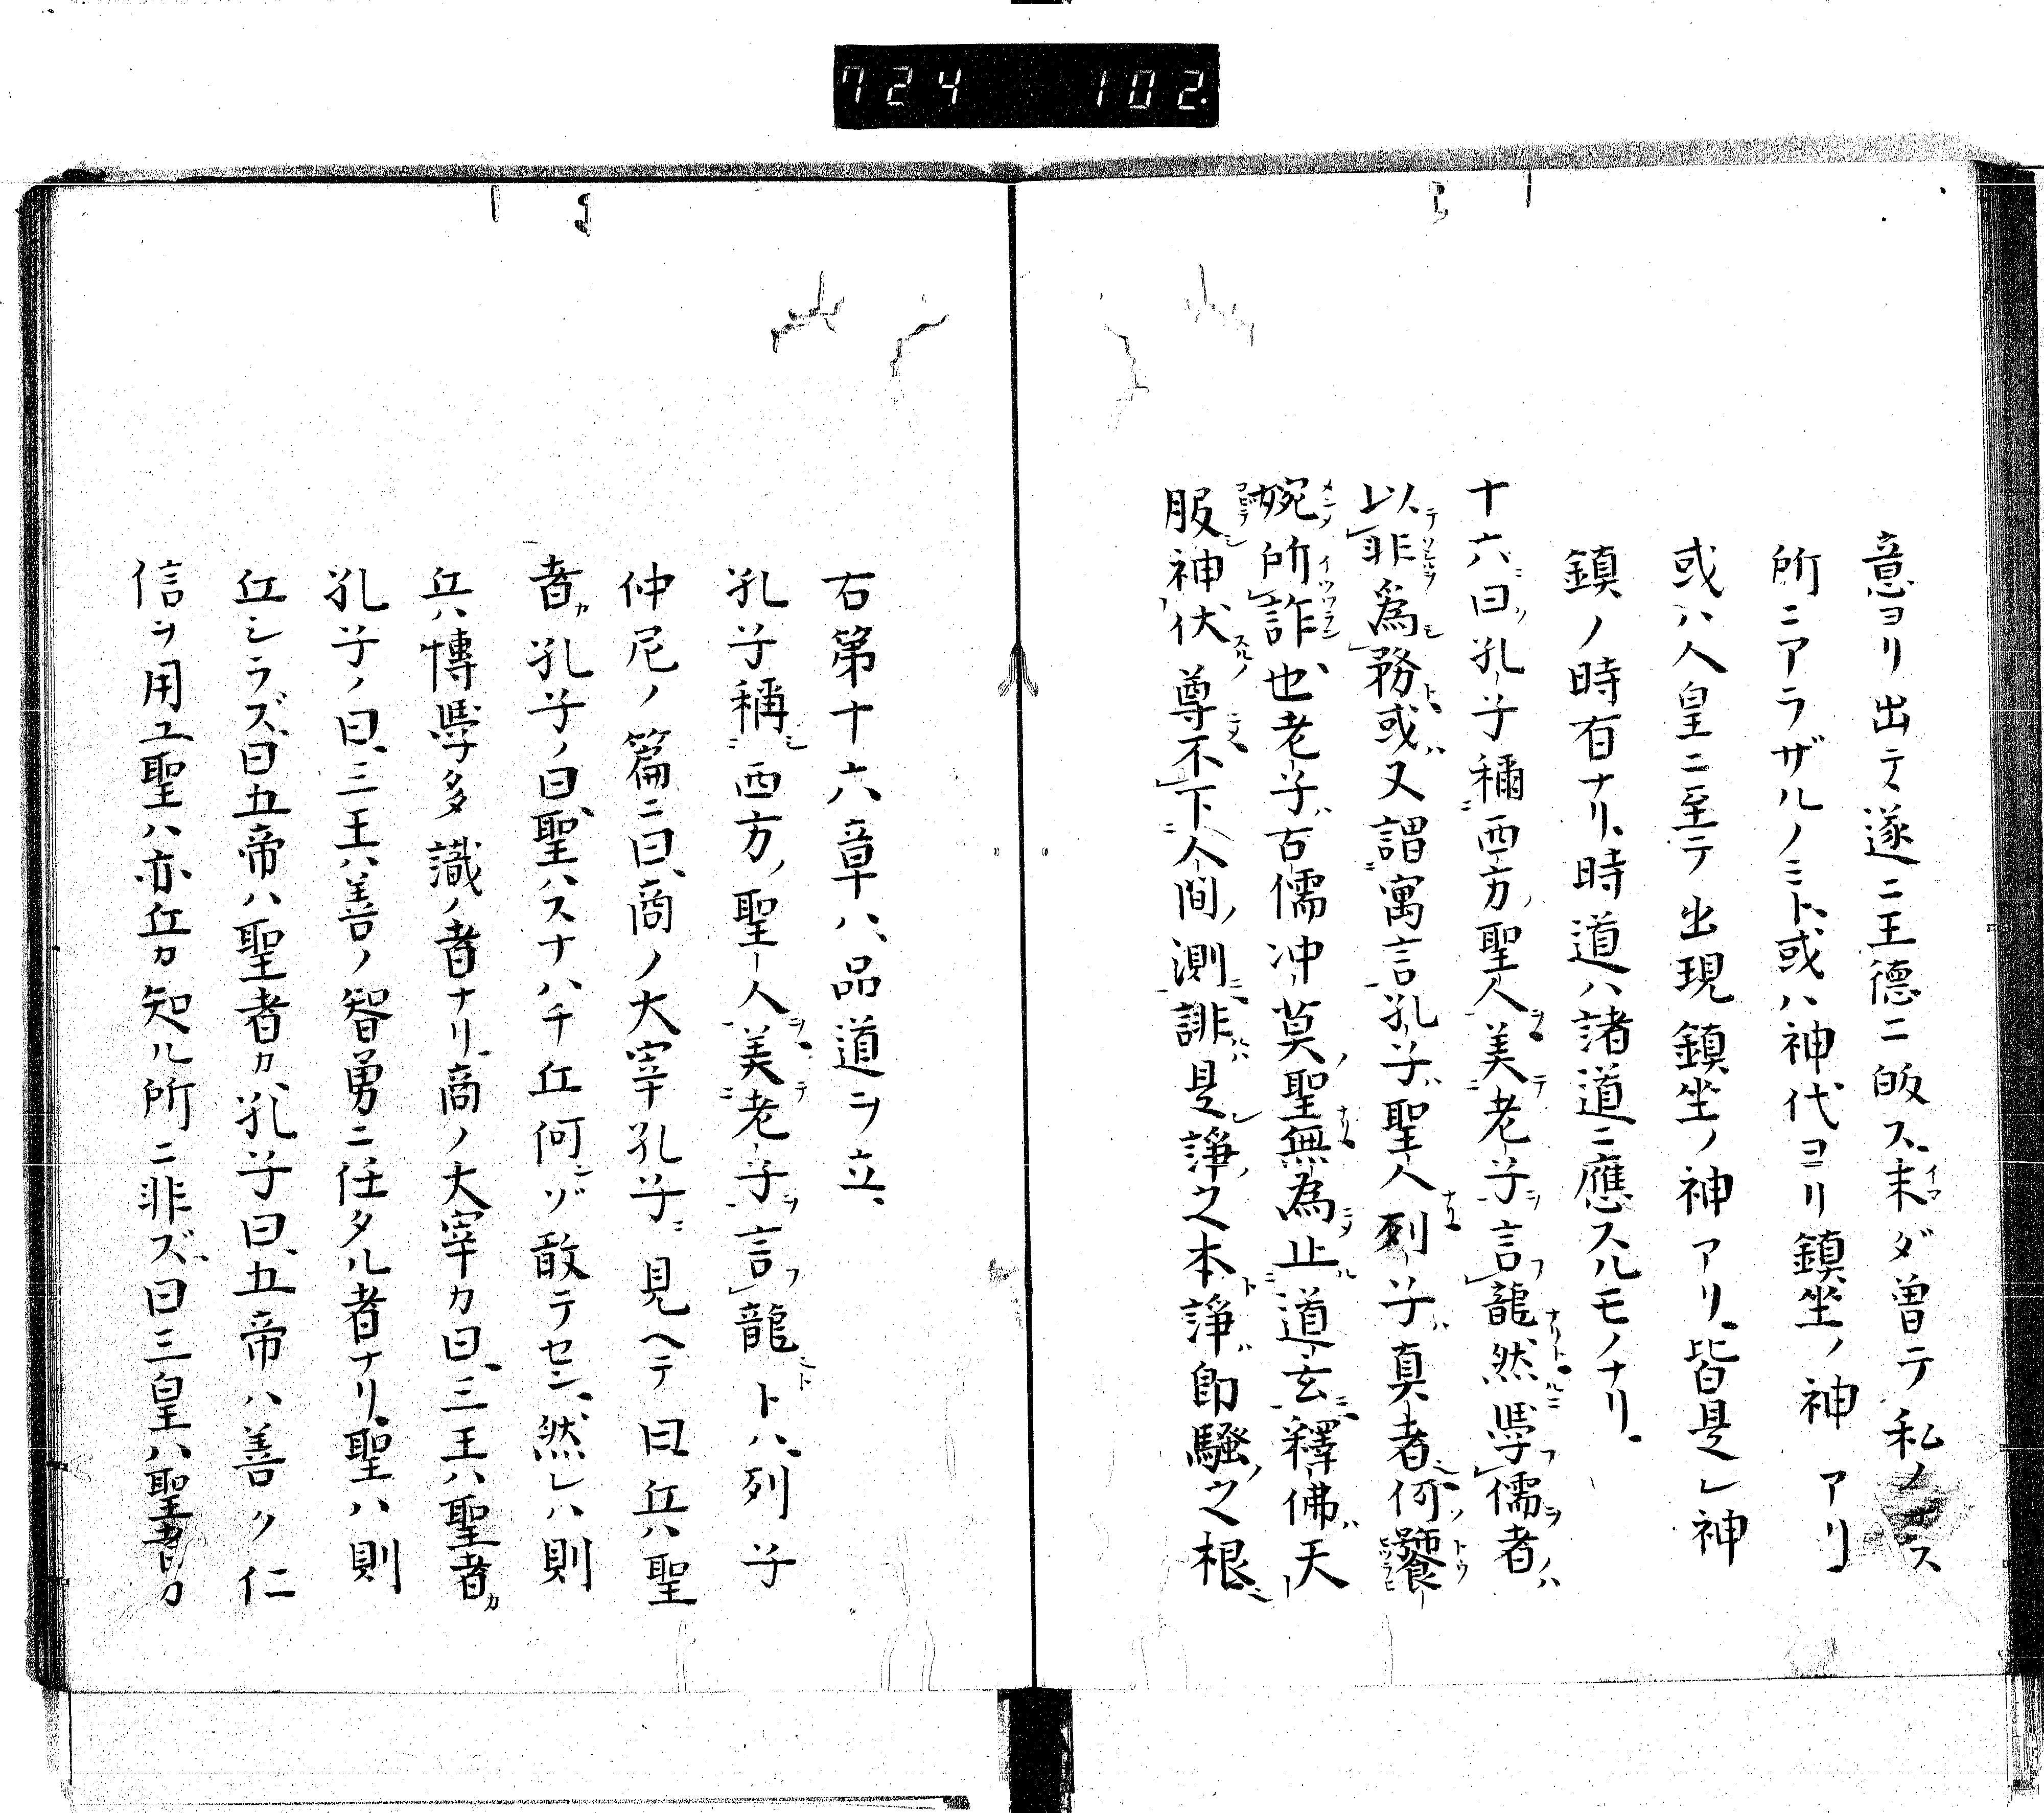 724 102.
意ヨリ出テ遂ニ王德ニ皈ス、未ダ曽テ私ノナス
所ニアラザルノミト、或ハ神代ヨリ鎮坐ノ神アリ
或ハ人皇ニ至テ出現鎮坐ノ神アリ、皆是レ神
鎮ノ時有ナリ、時道ハ諸道ニ應スルモノナリ、
十六ニ曰ク孔子稱ニ西方ノ聖人ヲ美テ老子ヲ言フ龍ナリト然ルニ學フ儒ヲ者ノハ
以テ非ヲ為シ務ト或ハ又謂ニ寓言孔子ハ聖人ナリ列子ハ真者何ノ饕
婉所詐也老子ハ古儒冲莫ノ聖無為ニ止ル道玄釋佛ハ天
服神伏スルノ尊不下ニ人間ノ測ニ誹ルハ是レ諍ノ之本ト諍ハ即騒ノ之根ニ
右第十六章ハ、品道ヲ立、
孔子稱シ西方ノ聖人ヲ美テ老子ヲ言フ龍トハ、列子
仲尼ノ篇ニ曰、商ノ大宰孔子ニ見ヘテ曰丘ハ聖
者カ孔子ノ曰、聖ハスナハチ丘何ゾ敢テセン、然レハ則
丘ハ博學多識ノ者ナリ、商ノ大宰カ曰、三王ハ聖者カ
孔子ノ曰、三王ハ善ノ智勇ニ任タル者ナリ、聖ハ則
丘シラズ、曰五帝ハ聖者カ、孔子曰、五帝ハ善ク仁
信ヲ用ユ聖ハ亦丘カ知ル所ニ非ズ、曰三皇ハ聖者カ